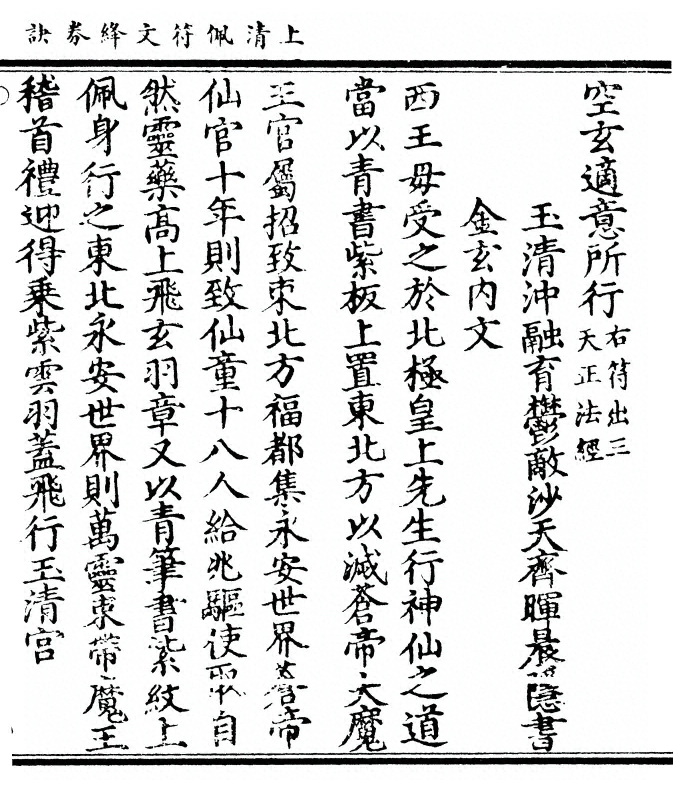 上清佩符文絳券訣
空玄適意所行右符出三
天正法經
玉清沖融育鬱敵沙天齊暉晨隱書
金玄内文
西王母受之於北極皇上先生行神仙之道
當以青書紫板上置東北方以滅蒼帝大魔
王官屬招致東北方福都集永安世界蒼帝
仙官十年則致仙童十八人給兆驅使取自
然靈藥高上飛玄羽章又以青筆書紫紋上
佩身行之東北永安世界則萬靈束帶魔王
稽首禮迎得乗紫雲羽蓋飛行玉清宫